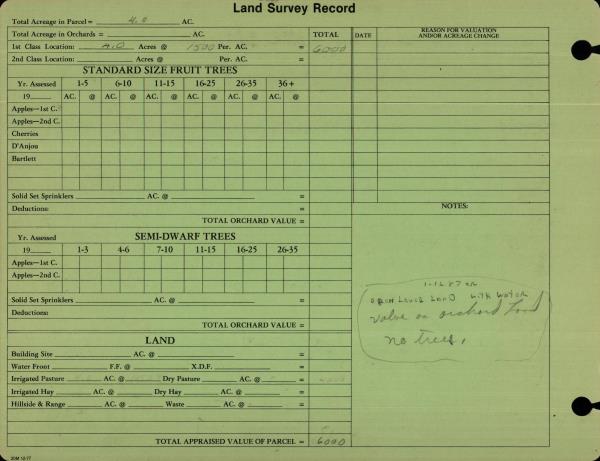 Land Survey Record
Total Acreage in Parcel = 4.0 AC.
Total Acreage in Orchards = AC. TOTAL DATE REASON FOR VALUATION AND/OR ACREAGE CHANGE
1st Class Location: 4.0 Acres @ 1500 Per. AC. = 6000
2nd Class Location: Acres @ Per. AC. =
STANDARD SIZE FRUIT TREES
Yr. Assessed 1-5 6-10 11-15 16-25 26-35 36+
19 AC. @ AC. @ AC. @ AC. @ AC. @ AC. @
Apples—1st C.
Apples—2nd C.
Cherries
D'Anjou
Bartlett
Solid Set Sprinklers AC. @ =
Deductions: =
TOTAL ORCHARD VALUE =
NOTES:
SEMI-DWARF TREES
Yr. Assessed
19 1-3 4-6 7-10 11-15 16-25 26-35
Apples—1st C.
Apples—2nd C.
Solid Set Sprinklers AC. @ =
Deductions:
TOTAL ORCHARD VALUE =
1-12-87
LAND with water
value on orchard land
no trees.
LAND
Building Site AC. @ =
Water Front F.F. @ X.D.F. =
Irrigated Pasture AC. @ Dry Pasture AC. @ =
Irrigated Hay AC. @ Dry Hay AC. @ =
Hillside & Range AC. @ Waste AC. @ =
TOTAL APPRAISED VALUE OF PARCEL = 6000
20M 12-77